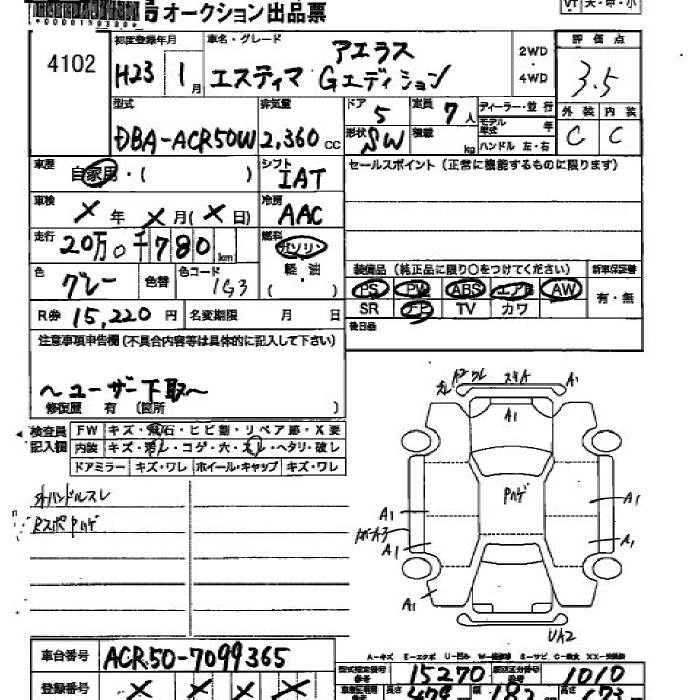 オークション出品票
4102
初度登録年月
H23 1月
車名・グレード
アエラス
エスティマ Gエディション
2WD
・
4WD
評価点
3.5
型式
DBA-ACR50W
排気量
2,360 CC
ドア
5
定員
7人
形状
SW
積載
kg
ディーラー・並行
モデル年式 年
ハンドル 左・右
外装 内装
C C
車歴
自家用・( )
シフト
IAT
冷房
AAC
車検
× 年 × 月(× 日)
走行
20万0千780km
燃料
ガソリン・
軽・油
( )
色
グレー
色替
色コード
1G3
R券 15,220円
名変期限 月 日
セールスポイント(正常に機能するものに限ります)
装備品(純正品に限り○をつけてください)
新車保証書
PS PW ABS エアB AW
SR ナビ TV カワ
有・無
後日品
注意事項申告欄(不具合内容等は具体的に記入して下さい)
〜ユーザー下取〜
修復歴 有 (箇所 )
検査員記入欄
FW キズ・飛石・ヒビ割・リペア跡・X要
内装 キズ・汚レ・コゲ・穴・スレ・ヘタリ・破レ
ドアミラー キズ・ワレ ホイール・キャップ キズ・ワレ
外ハンドルスレ
RスポPハゲ
A2 ワレ スキA A1
A1
Pハゲ
A1
A1
A1
A1
A1
UA2
車台番号
ACR50-7099365
登録番号
× × × ×
型式指定番号
15270
類別区分番号
1010
長さ
幅